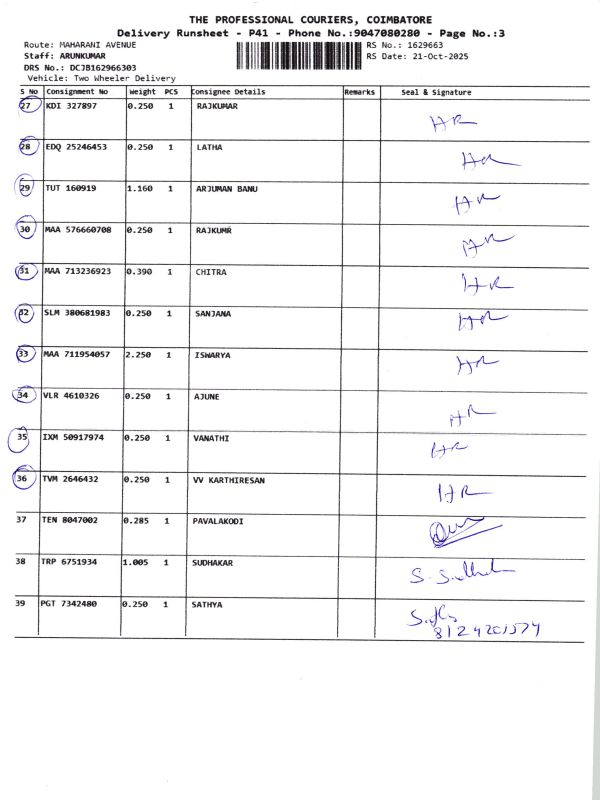 THE PROFESSIONAL COURIERS, COIMBATORE
Delivery Runsheet - P41 - Phone No.:9047080280 - Page No.:3
Route: MAHARANI AVENUE RS No.: 1629663
Staff: ARUNKUMAR RS Date: 21-Oct-2025
DRS No.: DCJB162966303
Vehicle: Two Wheeler Delivery
S No Consignment No Weight PCS Consignee Details Remarks Seal & Signature
27 KDI 327897 0.250 1 RAJKUMAR HR
28 EDQ 25246453 0.250 1 LATHA HR
29 TUT 160919 1.160 1 ARJUMAN BANU HR
30 MAA 576660708 0.250 1 RAJKUMR HR
31 MAA 713236923 0.390 1 CHITRA HR
32 SLM 380681983 0.250 1 SANJANA HR
33 MAA 711954057 2.250 1 ISWARYA HR
34 VLR 4610326 0.250 1 AJUNE HR
35 IXM 50917974 0.250 1 VANATHI HR
36 TVM 2646432 0.250 1 VV KARTHIRESAN HR
37 TEN 8047002 0.285 1 PAVALAKODI
38 TRP 6751934 1.005 1 SUDHAKAR
39 PGT 7342480 0.250 1 SATHYA